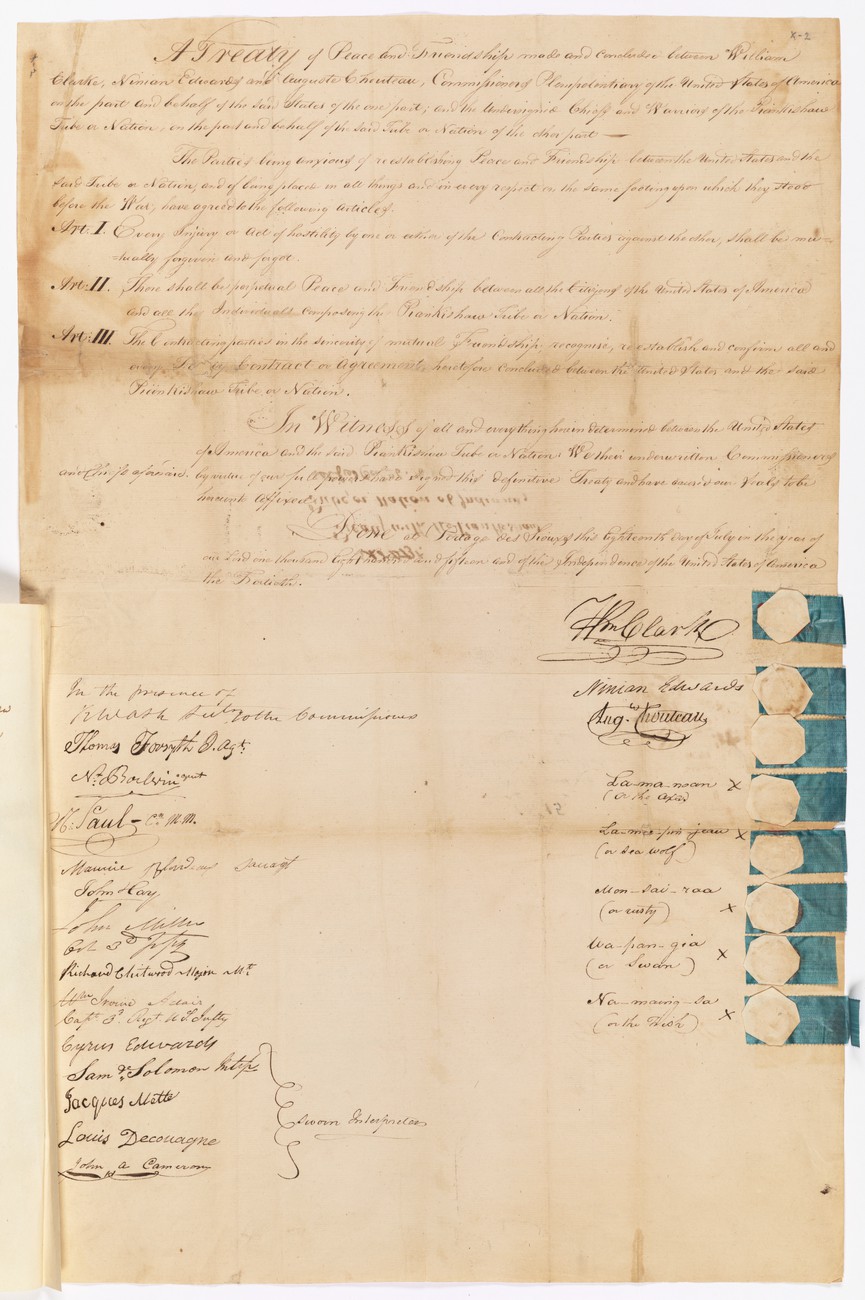 X-2
A Treaty of Peace and Friendship made and concluded between William
Clarke, Ninian Edwards and Auguste Chouteau, Commissioners Plenipotentiary of the United States of America
on the part and behalf of the said States of the one part; and the undersigned Chiefs and Warriors of the Piankishaw
Tribe or Nation, on the part and behalf of the said Tribe or Nation of the other part
The Parties being anxious of reestablishing Peace and Friendship between the United States and the
said Tribe or Nation, and of being placed in all things and in every respect on the same footing upon which they stood
before the War, have agreed to the following articles.
Art: I. Every Injury or Act of hostility by one or either of the Contracting Parties against the other, shall be mu=
=tually forgiven and forgot.
Art: II. There shall be perpetual Peace and Friendship between all the Citizens of the United States of America
and all the Individuals composing the Piankishaw Tribe or Nation.
Art: III. The Contracting parties in the sincerity of mutual Friendship, recognise, re-establish and confirm all and
every Treaty Contract or Agreement, heretofore concluded between the United States and the said
Piankishaw Tribe or Nation.
In Witness of all and every thing herein determined between the United States
of America and the said Piankishaw Tribe or Nation: We their underwritten Commissioners
and Chiefs aforesaid, by virtue of our full powers have signed this definitive Treaty and have caused our Seals to be
hereunto affixed.
Done at Portage des Sioux this Eighteenth day of July in the year of
our Lord one thousand Eight hundred and fifteen and of the Independence of the United States of America
the Fortieth.
Wm Clark
Ninian Edwards
Aug.te Chouteau
La-ma-noan X
(or the axe)
La-me-pin-jeau X
(or Sea wolf)
Mon-sai-raa
(or rusty) X
Wa-pan-gia
(or Swan) X
Na-maing-sa
(or the Fish) X
In the presence of
R Wash Secty to the Commissions
Thomas Forsyth I. Agt.
N. Boilvin agent
R: Paul - Cn M.M.
Maurice
John Hay
John Miller
Col 3d Infty
Richard Chitwood Major Mt
Wm Irvine Adair
Capt 3d Regt US Infty
Cyrus Edwards
Saml Solomon Intrp
Jacques Mette
Louis Decouagne
John A Cameron
Sworn Interpreters